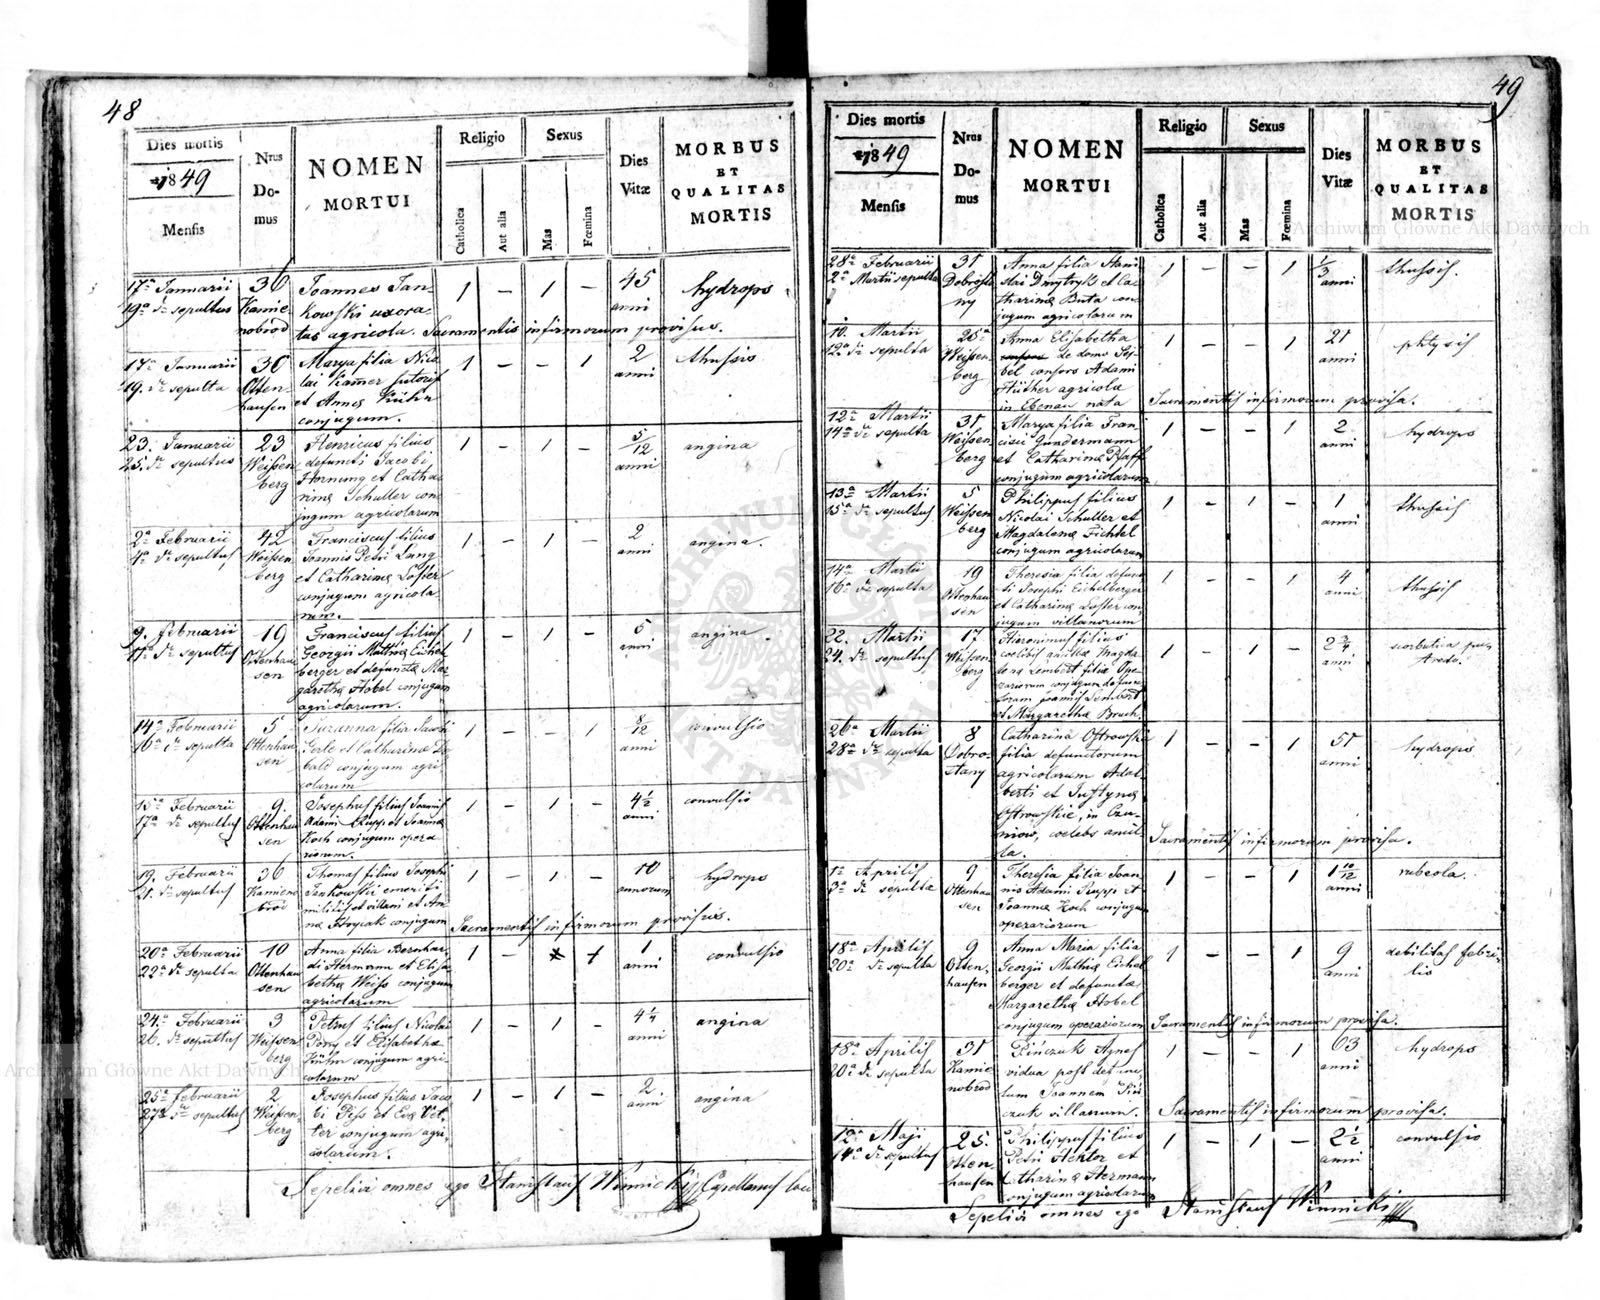 48
Dies mortis
1849
Mensis
Nrus
Do-
mus
NOMEN
MORTUI
Religio
Catholica
Aut alia
Sexus
Mas
Fœmina
Dies
Vitæ
MORBUS
ET
QUALITAS
MORTIS
17a Januarii
19a dto sepultus
36
Kamie
nobrod
Joannes Jan
kowski uxora
tus agricola. Sacramentis infirmorum provisus.
1 – 1 –
45
anni
hydrops
17a Januarii
19. dto sepulta
30
Otten
hausen
Marya filia Nico
lai Kamer sutoris
et Anna Kühn
conjugum.
1 – – 1
2
anni
thussis
23. Januarii
25. dto sepultus
23
Weissen
berg
Henricus filius
defuncti Jacobi
Hornung et Catha
rina Schuller con
jugum agricolarum
1 – 1 –
5/12
anni
angina
2a Februarii
4a dto sepultus
42
Weissen
berg
Franciscus filius
Joannis Petri Lang
et Catharina Löffler
conjugum agricola
rum.
1 – 1 –
2
anni
angina.
9. Februarii
11a dto sepultus
19
Ottenhau
sen
Franciscus filius
Georgii Mathiæ Eichel
berger et defunctæ Mar
garethæ Hobel conjugum
agricolarum.
1 – 1 –
5
anni
angina.
14a Februarii
16a dto sepulta
5
Ottenhau
sen
Suzanna filia Jacobi
Gerle et Catharinæ
conjugum agri
colarum
1 – – 1
8/12
anni
convulsio
15a Februarii
17a dto sepultus
9.
Ottenhau
sen
Josephus filius Joannis
Adami Rupp et Joannæ
Koch conjugum opera
riorum.
1 – 1 –
4 1/2
anni
convulsio
19. Februarii
21. dto sepultus
36
Kamieno
brod
Thomas filius Josephi
Jankowski emeriti
militis et villani et An
na conjugum
Sacramentis infirmorum provisus.
1 – 1 –
10
annorum
hydrops
20a Februarii
22a dto sepulta
10
Ottenhau
sen
Anna filia Bernhar
di Hermann et Elisa
betha Weiss conjugum
agricolarum
1 – 1
1
anni
convulsio
24a Februarii
26. dto sepultus
3
Weissen
berg
Petrus filius Nicolai
Pony et Elisabetha
Kühn conjugum agri
colarum
1 – 1 –
4 1/4
anni
angina
25a Februarii
27a dto sepultus
2
Weissen
berg
Josephus filius Jaco
bi Piss et Eva Vet
ter conjugum agri
colarum.
1 – 1 –
2
anni
angina
Sepelivi omnes ego Stanislaus Winnicki Capellanus
49
Dies mortis
1849
Mensis
Nrus
Do-
mus
NOMEN
MORTUI
Religio
Catholica
Aut alia
Sexus
Mas
Fœmina
Dies
Vitæ
MORBUS
ET
QUALITAS
MORTIS
28a Februarii
2a Martii sepulta
31
Dobrosta
ny
Anna filia Stani
slai Dmytryk et Ca
tharina Buta con
jugum agricolarum
1 – – 1
1/3
anni
thussis.
10. Martii
12a dto sepulta
25a
Weissen
berg
Anna Elisabetha
de domo Sei
bel consors Adami
Hüther agricola
in Ebenau nata
Sacramentis infirmorum provisa.
1 – – 1
21
anni
phtysis
12a Martii
14a dto sepulta
31
Weissen
berg
Marya filia Fran
cisci Gundermann
et Catharina Pfaff
conjugum agricolarum
1 – – 1
2
anni
hydrops
13a Martii
15a dto sepultus
5
Weissen
berg
Philippus filius
Nicolai Schuller et
Magdalena Fichtel
conjugum agricolarum
1 – 1 –
1
anni
thussis
14a Martii
16a dto sepulta
19
Ottenhau
sen
Theresia filia defunc
ti Josephi Eichelberger
et Catharina Löffler con
jugum villanorum
1 – – 1
4
anni
thussis
22. Martii
24. dto sepultus
17
Weissen
berg
Hieronimus filius
coelibis ancillæ Magda
lena Lembert filiæ Ope
rariorum conjugum defunc
torum Joannis Lembert
et Margaretha Bruch.
1 – 1 –
2 3/4
anni
scorbutica pu
tredo.
26a Martii
28a dto sepulta
8
Dobro
stany
Catharina Ostrowska
filia defunctorum
agricolarum Adal
berti et Justyna
Ostrowskie, in Czu
niow, coelebs ancil
la.
Sacramentis infirmorum provisa.
1 – – 1
51
anni
hydrops
1a Aprilis
3a dto sepulta
9
Ottenhau
sen
Theresia filia Joan
nis Adami Rupp et
Joanna Koch conjugum
operariorum
1 – – 1
1 10/12
anni
rubeola.
18a Aprilis
20a dto sepulta
9
Otten
hausen
Anna Maria filia
Georgii Mathiæ Eichel
berger et defunctæ
Margaretha Hobel
conjugum operariorum Sacramentis infirmorum provisa.
1 – – 1
9
anni
debilitas febri
lis
18a Aprilis
20a dto sepulta
31
Kamie
nobrod
Pińczuk Agnes
vidua post defunc
tum Joannem Piń
czuk villanum. Sacramentis infirmorum provisa.
1 – – 1
63
anni
hydrops
12a Maji
14a dto sepultus
25.
Otten
hausen
Philippus filius
Petri Hektor et
Catharina Hermann
conjugum agricolarum
1 – 1 –
2 1/2
anni
convulsio
Sepelivi omnes ego Stanislaus Winnicki
Archiwum Główne Akt Dawnych
Archiwum Główne Akt Dawnych
ARCHIWUM GŁÓWNE AKT DAWNYCH